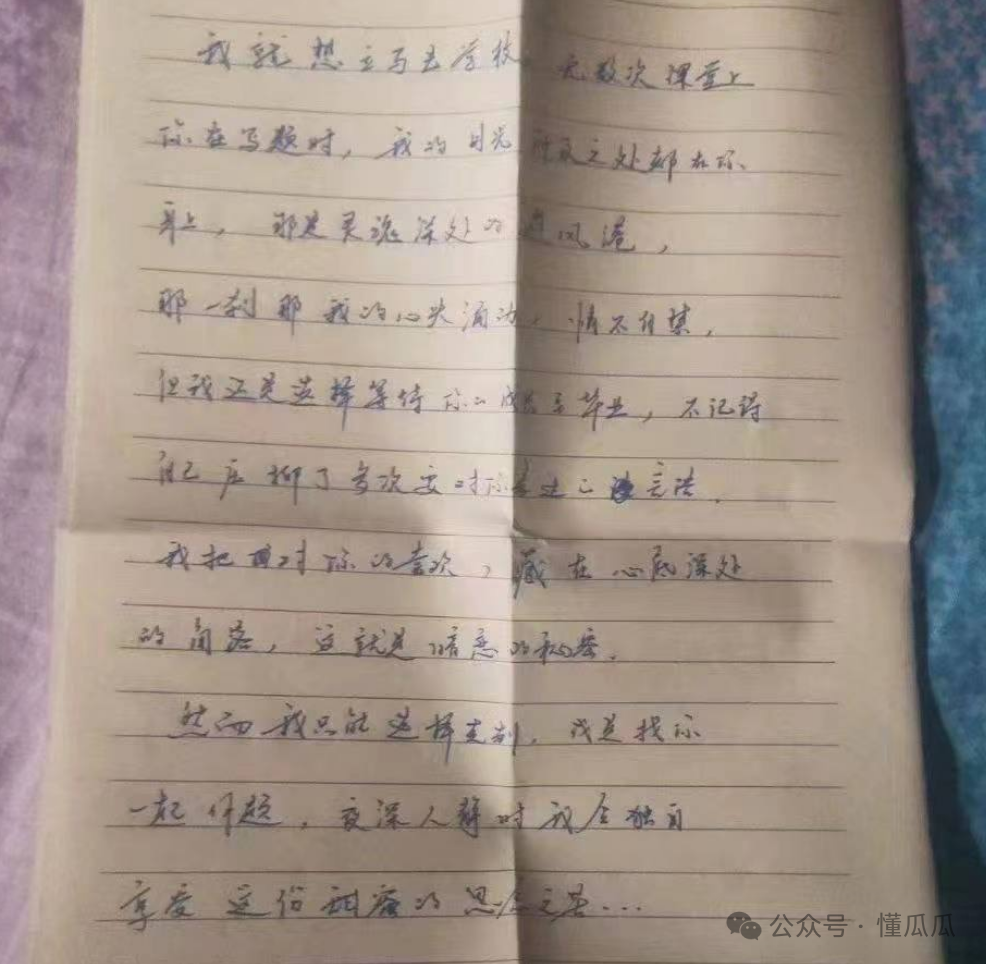 我就想立马去学校，无数次课堂上
你在写题时，我的目光所及之处都在你
身上，那是灵魂深处的避风港，
那一刹那我的心头涌动，情不自禁，
但我还是选择等待你 毕业，不记得
自己压抑了多次要对你表达 言语．
我把 对你的喜欢，藏在心底深处
的角落，这就是暗恋的秘密．
然而我只能选择克制，或是找你
一起做题，夜深人静时我会独自
享受这份甜蜜的思念之苦...
公众号·懂瓜瓜